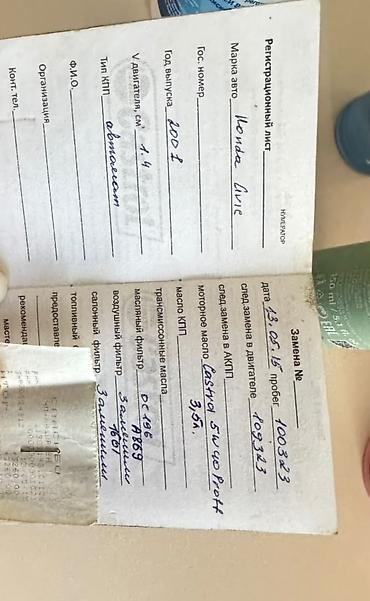 Регистрационный лист
НУМЕРАТОР
Марка авто Honda Civic
Гос. номер
Год выпуска 2001
V двигателя, см³ 1.4
Тип КПП автомат
Ф.И.О.
Организация
Конт. тел.
Замена №
дата 13.05.15 пробег 100323
след.замена в двигателе 109323
след.замена в АКПП
моторное масло Castrol 5w40
3,5л.
масло КПП
трансмиссионные масла
масляный фильтр OC196
воздушный фильтр Заменили
салонный фильтр Заменили
топливный
предоставле
рекоменда
масте